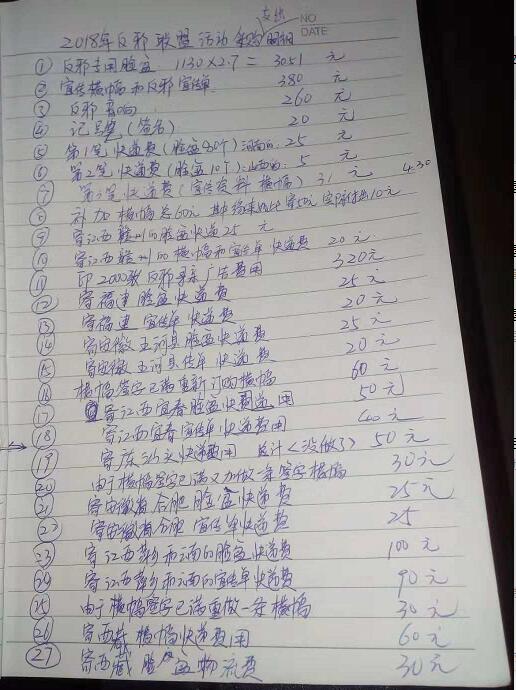 支出
NO
DATE
2018年反邪联盟活动采购明细
① 反邪专用脸盆 1130×2.7= 3051 元
② 宣传横幅和反邪宣传单 380 元
③ 反邪音响 260 元
④ 记号笔(签名) 20 元
⑤ 第1笔快递费(脸盆80个)河南的: 25 元
⑥ 第2笔快递费(脸盆10个):山西的: 5 元
⑦ 第3笔快递费(宣传资料 横幅) 31 元 4.30
⑧ 补加横幅总60元 其中 50元 实际付出10元
⑨ 寄江西赣州的脸盆快递 25 元
⑩ 寄江西赣州的横幅和宣传单快递费 20元
⑪ 印2000张反邪 广告费用 320元
⑫ 寄福建脸盆快递费 25元
⑬ 寄福建宣传单快递费 20元
⑭ 寄安徽五河县脸盆快递费 25元
⑮ 寄安徽五河县传单快递费 20元
⑯ 横幅签字已满重新订购横幅 60元
⑰ 寄江西宜春脸盆快递费用 50元
⑱ 寄江西宜春宣传单快递费用 40元
⑲ 寄广东汕头快递费用 <没做了> 50元
⑳ 由于横幅签字已满又加做一条签字横幅 30元
㉑ 寄安徽省合肥脸盆快递费 25元
㉒ 寄安徽省合肥宣传单快递费 25
㉓ 寄江西萍乡和云南的脸盆快递费 100元
㉔ 寄江西萍乡和云南的宣传单快递费 90元
㉕ 由于横幅签字已满重做一条横幅 30元
㉖ 寄西藏横幅快递费用 60元
㉗ 寄西藏脸盆物流费 30元